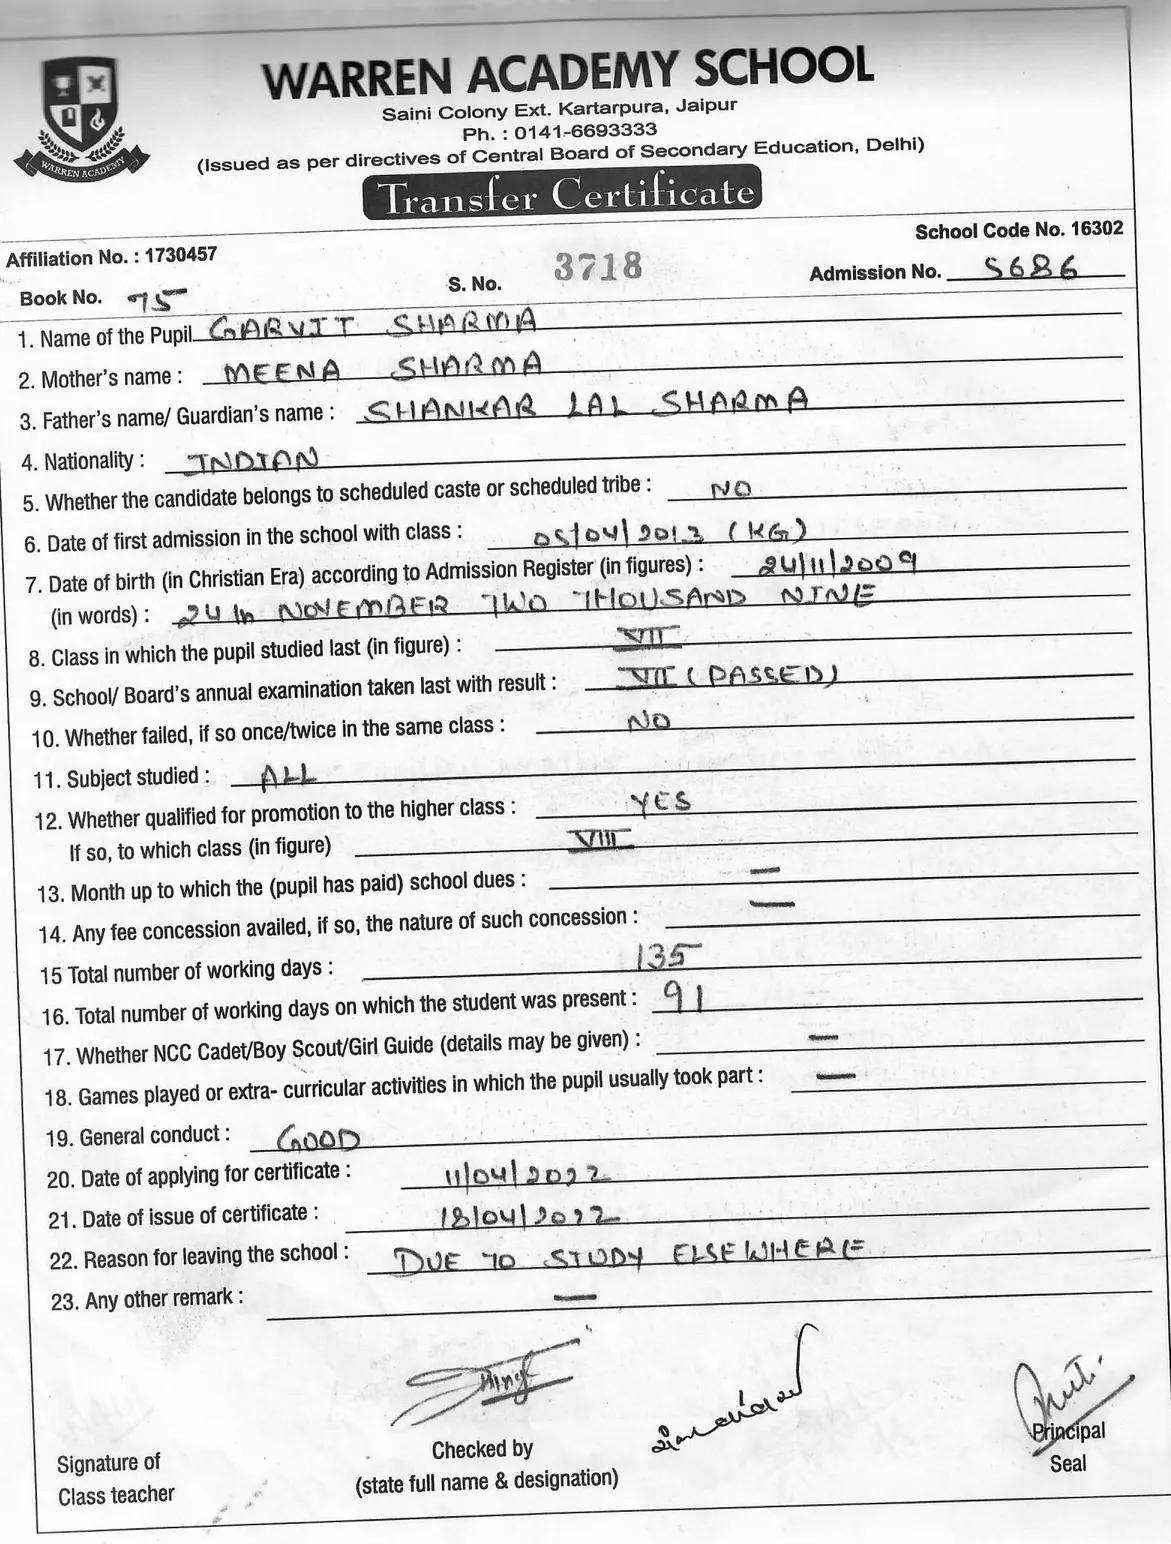 WARREN ACADEMY SCHOOL
Saini Colony Ext. Kartarpura, Jaipur
Ph. : 0141-6693333
(Issued as per directives of Central Board of Secondary Education, Delhi)
WARREN ACADEMY
Transfer Certificate
School Code No. 16302
Affiliation No. : 1730457
Book No. 75 S. No. 3718 Admission No. S686
1. Name of the Pupil GARVIT SHARMA
2. Mother's name : MEENA SHARMA
3. Father's name/ Guardian's name : SHANKAR LAL SHARMA
4. Nationality : INDIAN
5. Whether the candidate belongs to scheduled caste or scheduled tribe : NO
6. Date of first admission in the school with class : 05/04/2013 (KG)
7. Date of birth (in Christian Era) according to Admission Register (in figures) : 24/11/2009
(in words) : 24th NOVEMBER TWO THOUSAND NINE
8. Class in which the pupil studied last (in figure) : VII
9. School/ Board's annual examination taken last with result : VII (PASSED)
10. Whether failed, if so once/twice in the same class : NO
11. Subject studied : ALL
12. Whether qualified for promotion to the higher class : YES
If so, to which class (in figure) VIII
13. Month up to which the (pupil has paid) school dues : —
14. Any fee concession availed, if so, the nature of such concession : —
15 Total number of working days : 135
16. Total number of working days on which the student was present : 91
17. Whether NCC Cadet/Boy Scout/Girl Guide (details may be given) : —
18. Games played or extra- curricular activities in which the pupil usually took part : —
19. General conduct : GOOD
20. Date of applying for certificate : 11/04/2022
21. Date of issue of certificate : 18/04/2022
22. Reason for leaving the school : DUE TO STUDY ELSEWHERE
23. Any other remark : —
Signature of
Class teacher
Checked by
(state full name & designation)
Principal
Seal